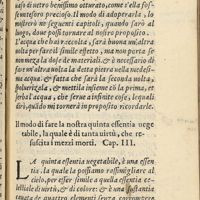 uaso di uetro benissimo otturato, come s'ella fos-
se mtesoro preciso. Il modo di adoprarla, lo
mostrerò ne seguenti capitoli, quando sarà al
luogo, doue possi tornare al nostro proposito.
L'acqua che hai raccolta, sarà buona un'altra
uolta per farelì simile effetto, ma non però sen-
za remettere la dose de materiali; & è necessario di
farne un'altra uolta la detta pietra nella medesi-
ma acqua: & fatta che sarà la seconda uolta,
poluerizala, & mettila insieme cõ la prima, & ser-
barai acqua, che serue a infinite cose, lequali
dirò, quãdo mi tornerà in proposito ricordarle.
Il modo di fare la nostra quinta essentia uege
tabile, la quale è di tanta uirtù, che re-
suscita i mezzi morti. Cap. III.
LA quinta essentia uegetabile, è una essen-
tia, la quale la possiamo rassimigliare al
cielo, per esser simile a quella essentia ce-
lestiale di uirtù, & di colore: & è una sustantia
de quattro elementi senza corrompere